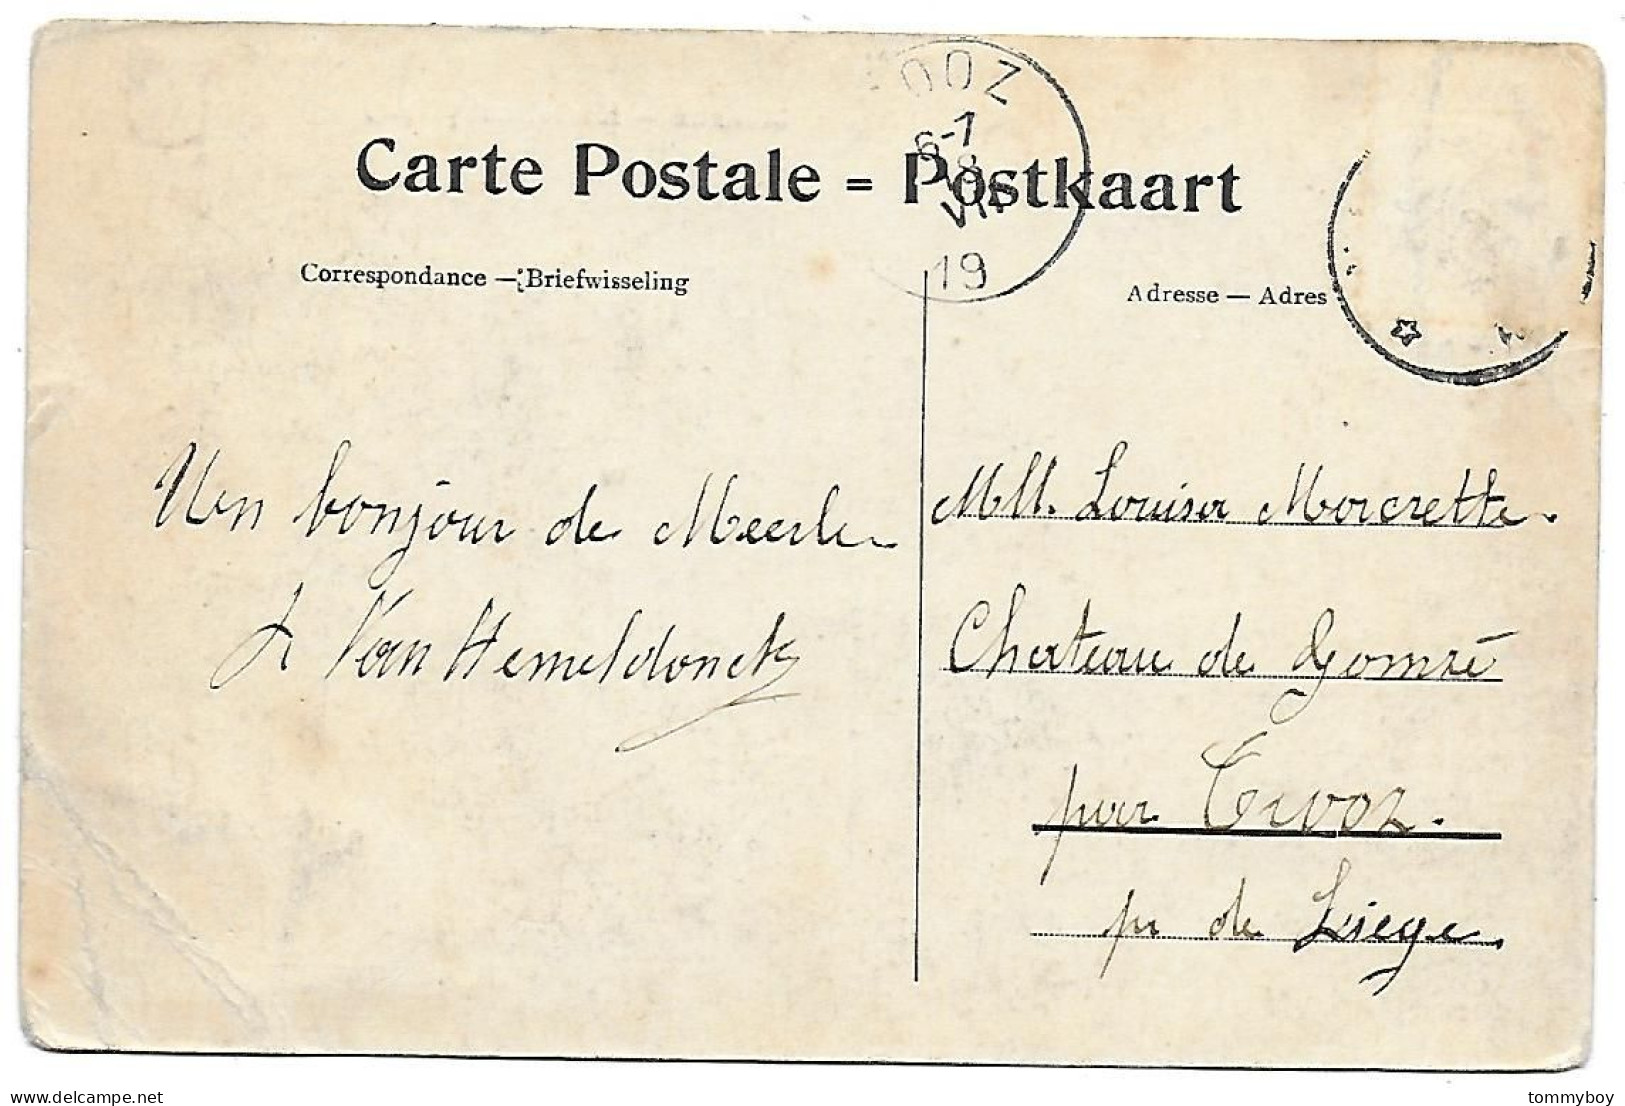 Carte Postale = Postkaart
Correspondance — Briefwisseling
Adresse — Adres
OOZ
6-7
8
VII
19
Un bonjour de Meerle
L Van Hemeldonck
Mlle. Louisa Morcrette.
Chateau de Gomzé
par Trooz.
pr de Liege.
tommyboy